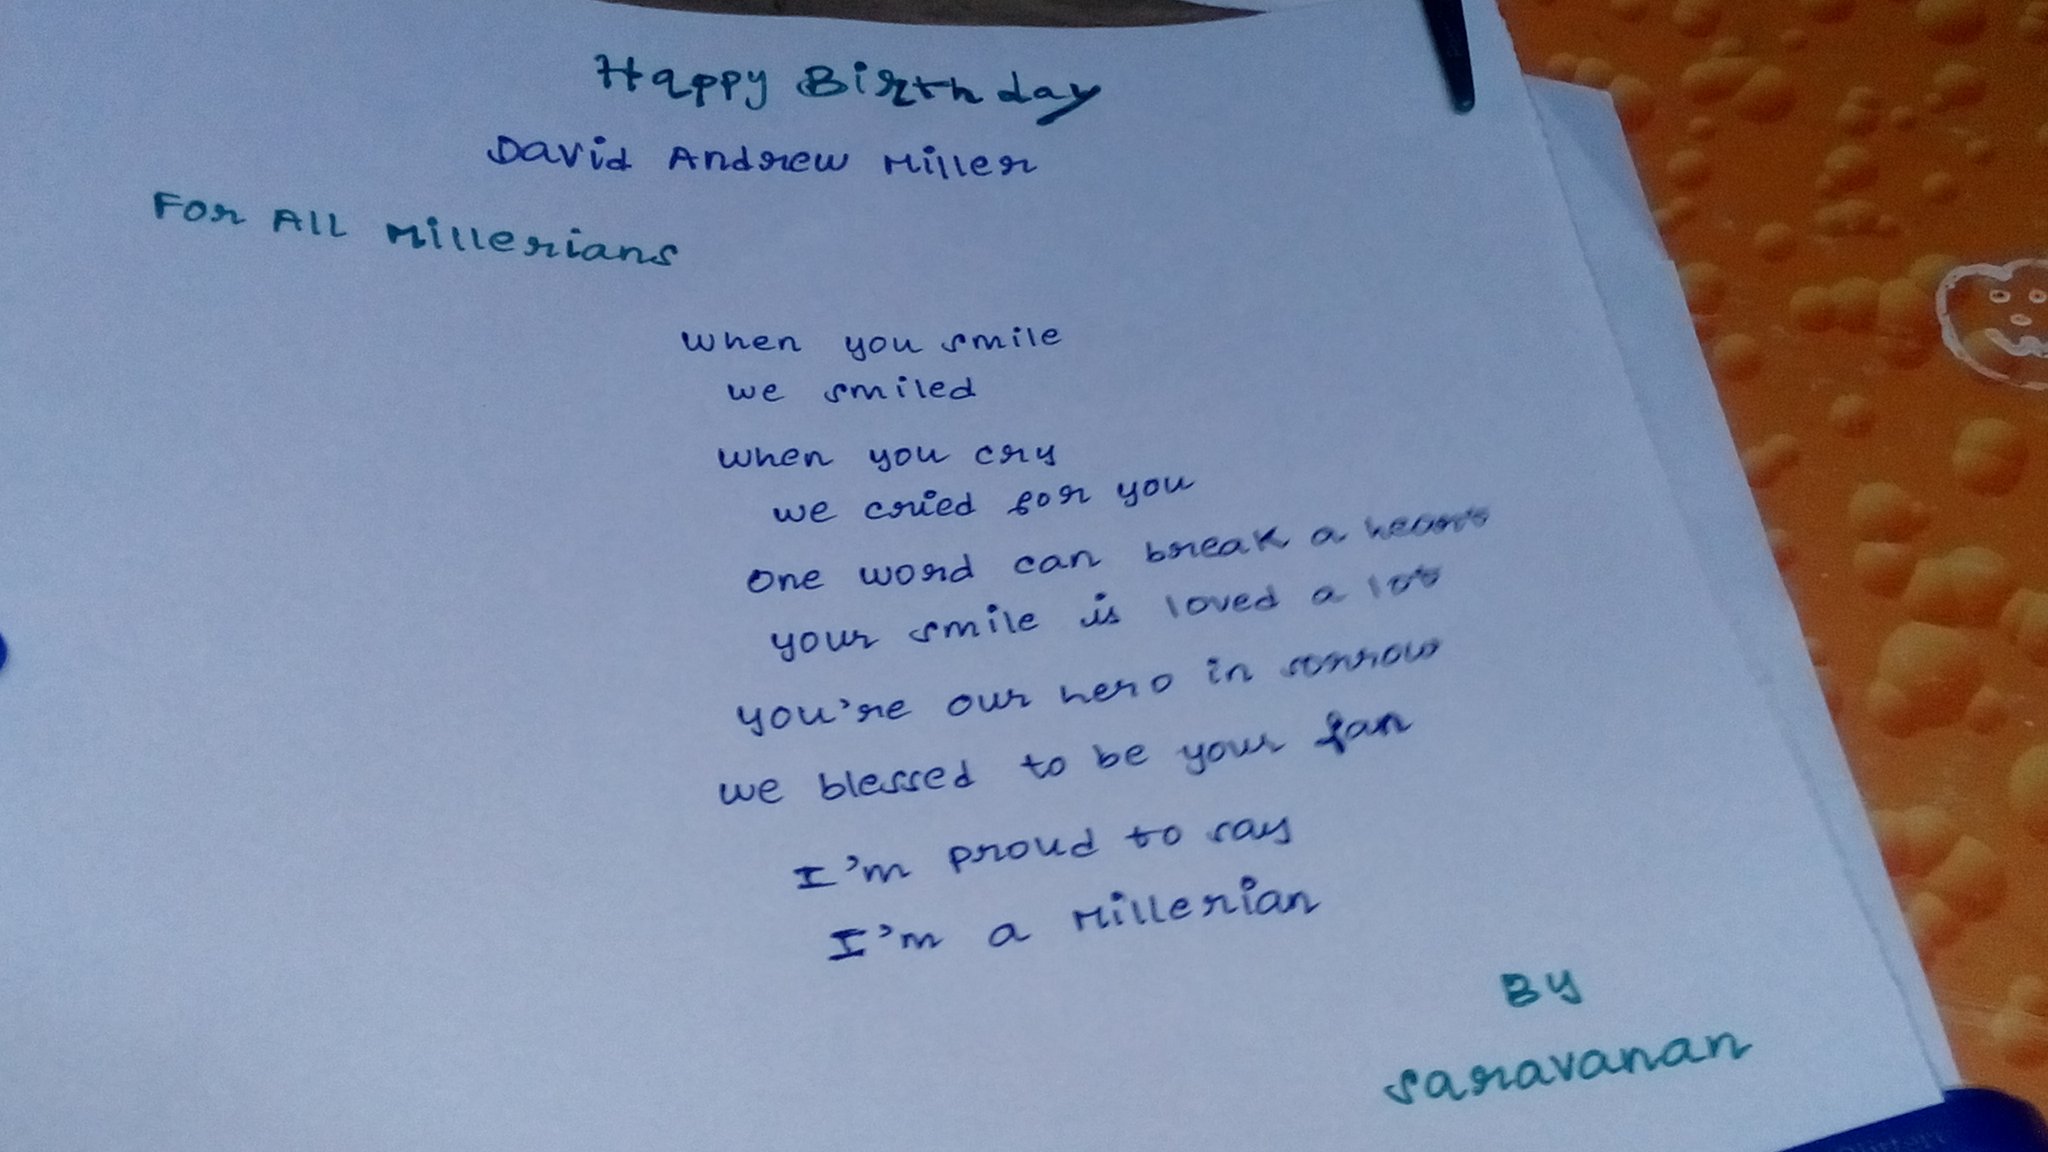 Happy Birthday
David Andrew Miller
For All Millerians
when you smile
we smiled
when you cry
we cried for you
one word can break a heart
your smile is loved a lot
you're our hero in sorrow
we blessed to be your fan
I'm proud to say
I'm a Millerian
By
Saravanan